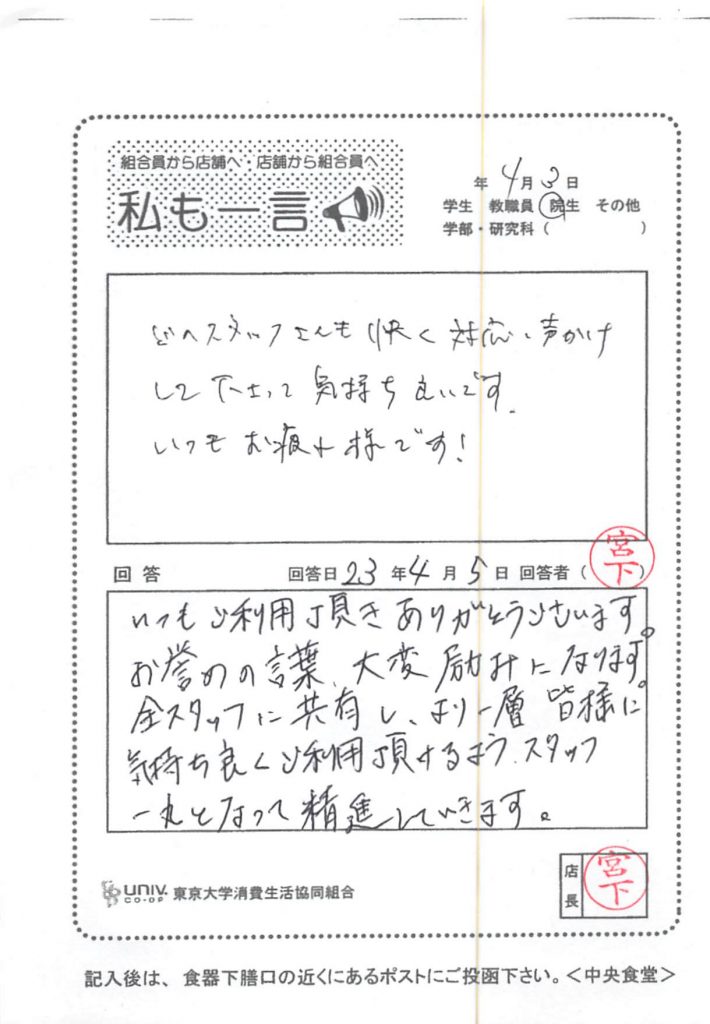 組合員から店舗へ・店舗から組合員へ
私も一言
年 4月 3日
学生 教職員 院生 その他
学部・研究科 ( )
どのスタッフさんも快く対応・声かけ
して下さって気持ち良いです。
いつもお疲れ様です!
回答 回答日 23年4月5日 回答者 (宮下)
いつもご利用頂きありがとうございます。
お誉めの言葉、大変励みになります。
全スタッフに共有し、より一層皆様に
気持ち良くご利用頂けるよう、スタッフ
一丸となって精進していきます。
UNIV. CO-OP 東京大学消費生活協同組合
店長 宮下
記入後は、食器下膳口の近くにあるポストにご投函下さい。<中央食堂>